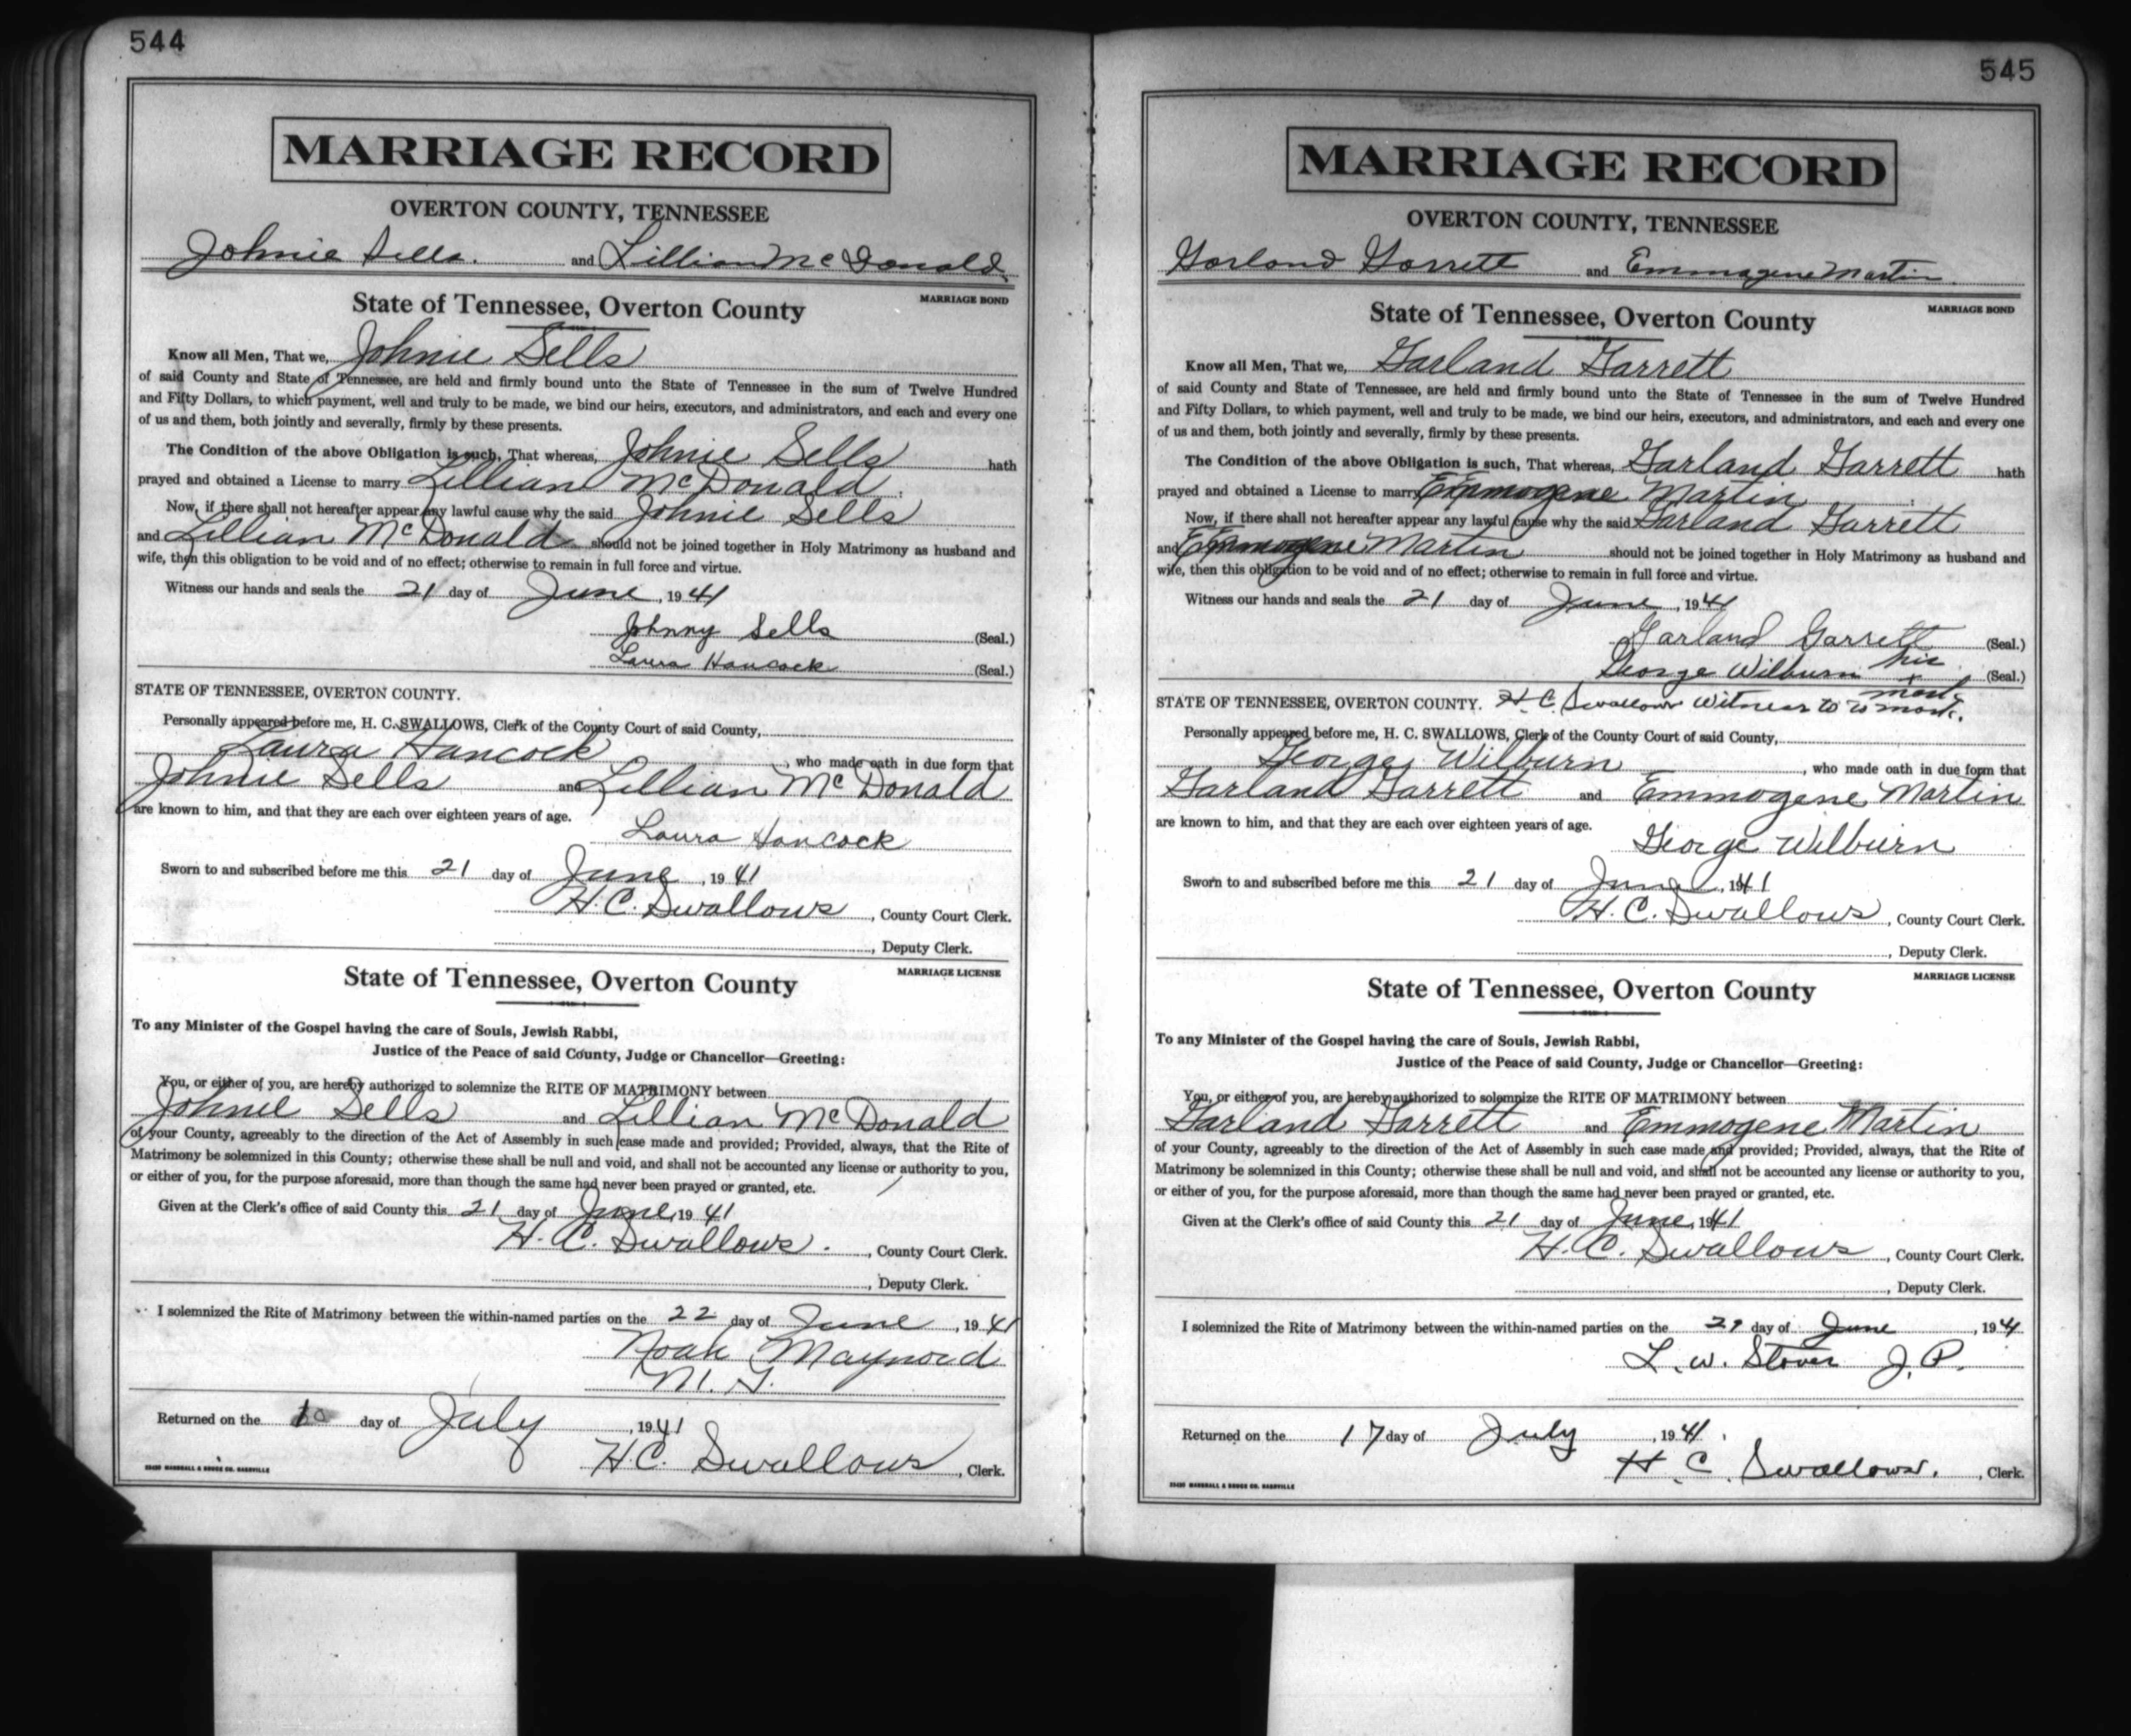 544
MARRIAGE RECORD
OVERTON COUNTY, TENNESSEE
Johnie Sells. and Lillian McDonald
MARRIAGE BOND
State of Tennessee, Overton County
Know all Men, That we, Johnie Sells
of said County and State of Tennessee, are held and firmly bound unto the State of Tennessee in the sum of Twelve Hundred
and Fifty Dollars, to which payment, well and truly to be made, we bind our heirs, executors, and administrators, and each and every one
of us and them, both jointly and severally, firmly by these presents.
The Condition of the above Obligation is such, That whereas, Johnie Sells hath
prayed and obtained a License to marry Lillian McDonald.
Now, if there shall not hereafter appear any lawful cause why the said Johnie Sells
and Lillian McDonald should not be joined together in Holy Matrimony as husband and
wife, then this obligation to be void and of no effect; otherwise to remain in full force and virtue.
Witness our hands and seals the 21 day of June, 1941
Johnny Sells (Seal.)
Laura Hancock (Seal.)
STATE OF TENNESSEE, OVERTON COUNTY.
Personally appeared before me, H. C. SWALLOWS, Clerk of the County Court of said County,
Laura Hancock, who made oath in due form that
Johnie Sells and Lillian McDonald
are known to him, and that they are each over eighteen years of age.
Laura Hancock
Sworn to and subscribed before me this 21 day of June, 1941
H. C. Swallows, County Court Clerk.
, Deputy Clerk.
MARRIAGE LICENSE
State of Tennessee, Overton County
To any Minister of the Gospel having the care of Souls, Jewish Rabbi,
Justice of the Peace of said County, Judge or Chancellor—Greeting:
You, or either of you, are hereby authorized to solemnize the RITE OF MATRIMONY between
Johnie Sells and Lillian McDonald
of your County, agreeably to the direction of the Act of Assembly in such case made and provided; Provided, always, that the Rite of
Matrimony be solemnized in this County; otherwise these shall be null and void, and shall not be accounted any license or authority to you,
or either of you, for the purpose aforesaid, more than though the same had never been prayed or granted, etc.
Given at the Clerk's office of said County this 21 day of June, 1941
H. C. Swallows., County Court Clerk.
, Deputy Clerk.
I solemnized the Rite of Matrimony between the within-named parties on the 22 day of June, 1941
Noah Maynord
M. G.
Returned on the 10 day of July, 1941
H.C. Swallows, Clerk.
MARSHALL & BRUCE CO. NASHVILLE
545
MARRIAGE RECORD
OVERTON COUNTY, TENNESSEE
Garland Garrett and Emmagene Martin.
MARRIAGE BOND
State of Tennessee, Overton County
Know all Men, That we, Garland Garrett
of said County and State of Tennessee, are held and firmly bound unto the State of Tennessee in the sum of Twelve Hundred
and Fifty Dollars, to which payment, well and truly to be made, we bind our heirs, executors, and administrators, and each and every one
of us and them, both jointly and severally, firmly by these presents.
The Condition of the above Obligation is such, That whereas, Garland Garrett hath
prayed and obtained a License to marry Emmogene Martin
Now, if there shall not hereafter appear any lawful cause why the said Garland Garrett
and Emmogene Martin should not be joined together in Holy Matrimony as husband and
wife, then this obligation to be void and of no effect; otherwise to remain in full force and virtue.
Witness our hands and seals the 21 day of June, 1941
Garland Garrett (Seal.)
George Wilburn his (Seal.)
x mark
STATE OF TENNESSEE, OVERTON COUNTY. H. C. Swallows Witness to mark.
Personally appeared before me, H. C. SWALLOWS, Clerk of the County Court of said County,
George Wilburn, who made oath in due form that
Garland Garrett and Emmogene Martin
are known to him, and that they are each over eighteen years of age.
George Wilburn
Sworn to and subscribed before me this 21 day of June, 1941
H. C. Swallows, County Court Clerk.
, Deputy Clerk.
MARRIAGE LICENSE
State of Tennessee, Overton County
To any Minister of the Gospel having the care of Souls, Jewish Rabbi,
Justice of the Peace of said County, Judge or Chancellor—Greeting:
You, or either of you, are hereby authorized to solemnize the RITE OF MATRIMONY between
Garland Garrett and Emmogene Martin
of your County, agreeably to the direction of the Act of Assembly in such case made and provided; Provided, always, that the Rite of
Matrimony be solemnized in this County; otherwise these shall be null and void, and shall not be accounted any license or authority to you,
or either of you, for the purpose aforesaid, more than though the same had never been prayed or granted, etc.
Given at the Clerk's office of said County this 21 day of June, 1941
H. C. Swallows, County Court Clerk.
, Deputy Clerk.
I solemnized the Rite of Matrimony between the within-named parties on the day of June, 194
L. W. Stover J. P.
Returned on the 17 day of July, 1941.
H. C. Swallows., Clerk.
MARSHALL & BRUCE CO. NASHVILLE